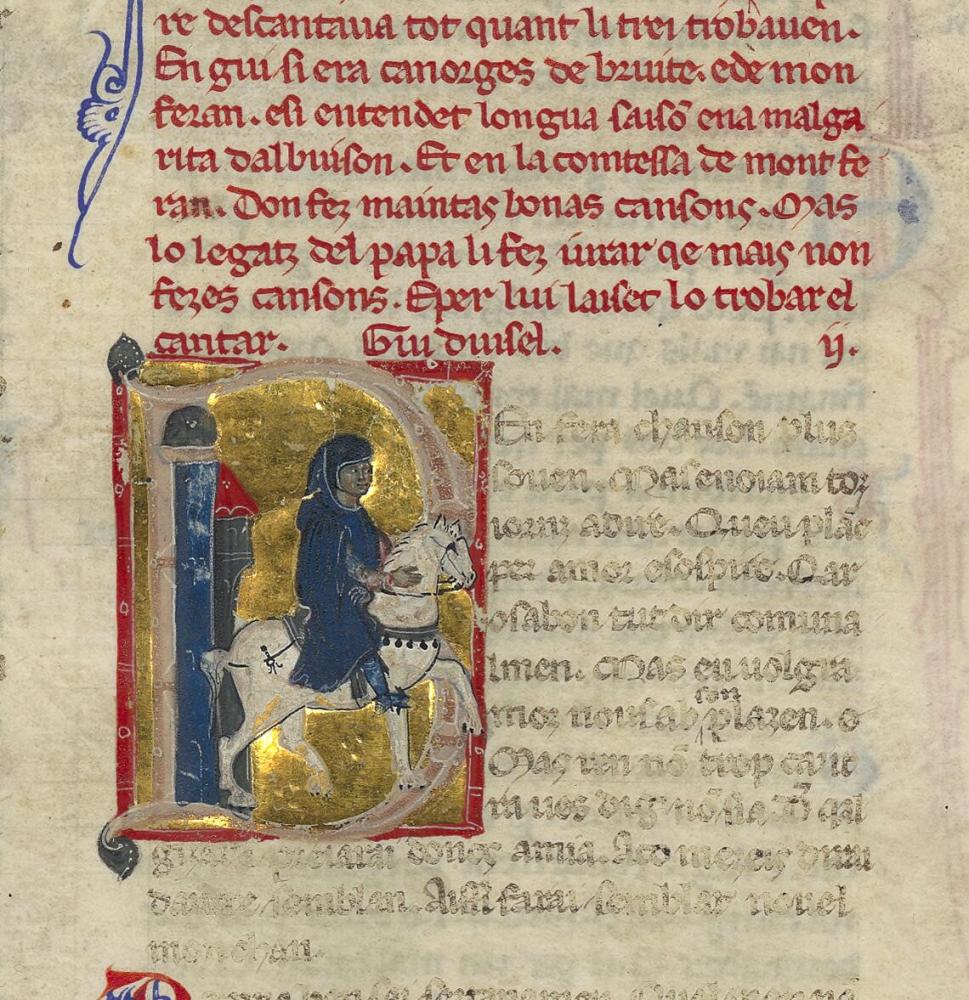 re descantaua tot quant li trei trobauen.
En gui si era canorges de bruite. ede mon
feran. esi entendet longua saisõ ena malga
rita dalbuison. Et en la comtessa de mont fe
ran. Don fez maintas bonas cansons. Mas
lo legatz del papa li fez iurar qe mais non
fezes cansons. Eper lui laiset lo trobar el
cantar. Gui duisel. ij.
En fera chanson plus
souen. Mas enoiam toz
iorn adire. Queu plãc
per amor esospire. Qar
osabon tut dir comuna
lmen. Mas eu uolgra
moz nous ab son plazen.
Mas ren nõ trop cautr
ueς dig nõ sia. D
donqs amia.
daltre semblan. Aissi farai semblar nouel
mon chan.